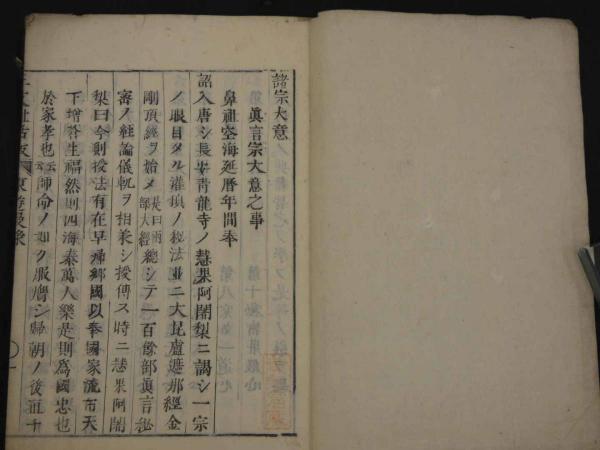 諸宗大意
眞言宗大意之事
鼻祖空海延暦年間奉
詔入唐シ長安青龍寺ノ慧果阿闍梨ニ謁シ一宗
ノ眼目タル灌頂ノ秘法並二大毘盧遮那經金
剛頂經ヲ始メ是曰兩部大經總シテ一百餘部眞言秘
密ノ經論儀軌ヲ相兼シ授傳ス時ニ慧果阿闍
梨曰今則授法有在早歸郷國以奉國家流布天
下増蒼生福然則四海泰萬人樂是則爲國忠也
於家孝也云云師命ノ如ク服膺シ歸朝ノ後